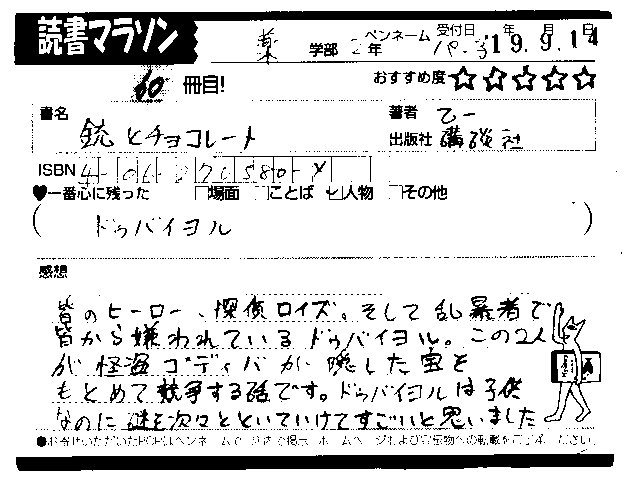 読書マラソン
薬 学部 2年 ペンネーム 受付日 年 月 日
19.9.14
60 冊目! おすすめ度 ☆☆☆☆☆
書名 銃とチョコレート 著者 乙一
出版社 講談社
ISBN 4-06-270580-X
♥一番心に残った □場面 □ことば ☑人物 □その他
( ドゥバイヨル )
感想
皆のヒーロー、探偵ロイズ。そして乱暴者で
皆から嫌われているドゥバイヨル。この2人
が怪盗ゴディバが隠した宝を
もとめて競争する話です。ドゥバイヨルは子供
なのに謎を次々とといていけてすごいと思いました
●お寄せいただいたPOPはペンネームで